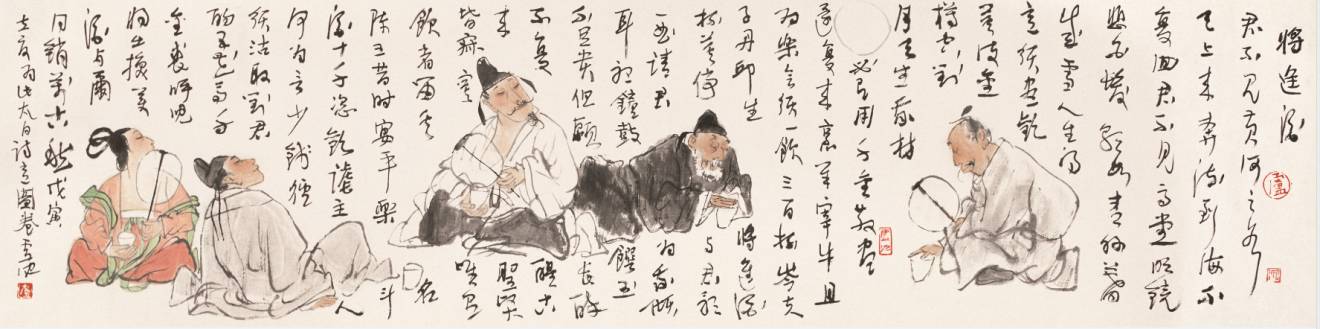 將進酒
君不見黃河之水
天上來奔流到海不
復回君不見高堂明鏡
悲白髮朝如青絲暮
成雪人生得
意須盡歡
莫使金
樽空對
月天生我材
必有用千金散盡
還復來烹羊宰牛且
為樂會須一飲三百杯岑夫
子丹邱生 將進酒
杯莫停 與君歌
一曲請君 為我傾
耳聽鐘鼓 饌玉
不足貴但願 長醉
不復 醒古
來 聖賢
皆寂寞 唯有
飲者留其 名
陳王昔時宴平樂 斗
酒十千恣歡謔主 人
何為言少錢徑
須沽取對君
酌五花馬千
金裘呼兒
將出換美
酒與爾
同銷萬古愁戊寅
立夏為此太白詩意圖卷